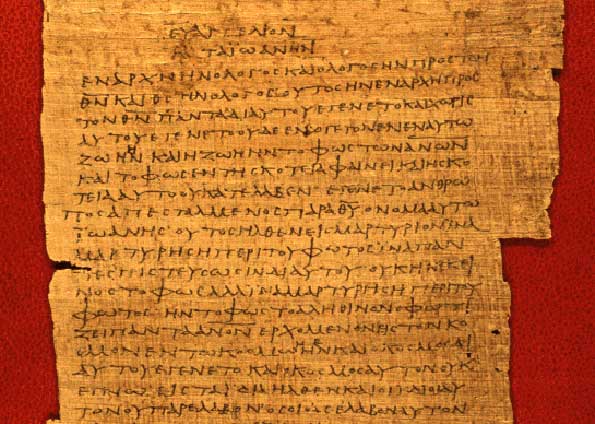 ΕΥΑΓΓΕΛΙΟΝ
ΚΑΤΑ ΙΩΑΝΗΝ
ΕΝ ΑΡΧΗ ΗΝ Ο ΛΟΓΟΣ ΚΑΙ Ο ΛΟΓΟΣ ΗΝ ΠΡΟΣ ΤΟΝ
ΘΝ ΚΑΙ ΘΣ ΗΝ Ο ΛΟΓΟΣ ΟΥΤΟΣ ΗΝ ΕΝ ΑΡΧΗ ΠΡΟΣ
ΤΟΝ ΘΝ ΠΑΝΤΑ ΔΙ ΑΥΤΟΥ ΕΓΕΝΕΤΟ ΚΑΙ ΧΩΡΙΣ
ΑΥΤΟΥ ΕΓΕΝΕΤΟ ΟΥΔΕ ΕΝ Ο ΓΕΓΟΝΕΝ ΕΝ ΑΥΤΩ
ΖΩΗ ΗΝ ΚΑΙ Η ΖΩΗ ΗΝ ΤΟ ΦΩΣ ΤΩΝ ΑΝΩΝ
ΚΑΙ ΤΟ ΦΩΣ ΕΝ ΤΗ ΣΚΟΤΕΙΑ ΦΑΙΝΕΙ ΚΑΙ Η ΣΚΟ
ΤΕΙΑ ΑΥΤΟ ΟΥ ΚΑΤΕΛΑΒΕΝ ΕΓΕΝΕΤΟ ΑΝΘΡΩ
ΠΟΣ ΑΠΕΣΤΑΛΜΕΝΟΣ ΠΑΡΑ ΘΥ ΟΝΟΜΑ ΑΥΤΩ
ΙΩΑΝΗΣ ΟΥΤΟΣ ΗΛΘΕΝ ΕΙΣ ΜΑΡΤΥΡΙΟΝ ΙΝΑ
ΜΑΡΤΥΡΗΣΗ ΠΕΡΙ ΤΟΥ ΦΩΤΟΣ ΙΝΑ ΠΑΝ
ΤΕΣ ΠΙΣΤΕΥΣΩΣΙΝ ΔΙ ΑΥΤΟΥ ΟΥΚ ΗΝ ΕΚΕΙ
ΝΟΣ ΤΟ ΦΩΣ ΑΛΛ ΙΝΑ ΜΑΡΤΥΡΗΣΗ ΠΕΡΙ ΤΟΥ
ΦΩΤΟΣ ΗΝ ΤΟ ΦΩΣ ΤΟ ΑΛΗΘΙΝΟΝ Ο ΦΩΤΙ
ΖΕΙ ΠΑΝΤΑ ΑΝΟΝ ΕΡΧΟΜΕΝΟΝ ΕΙΣ ΤΟΝ ΚΟ
ΣΜΟΝ ΕΝ ΤΩ ΚΟΣΜΩ ΗΝ ΚΑΙ Ο ΚΟΣΜΟΣ ΔΙ
ΑΥΤΟΥ ΕΓΕΝΕΤΟ ΚΑΙ Ο ΚΟΣΜΟΣ ΑΥΤΟΝ ΟΥΚ
ΕΓΝΩ ΕΙΣ ΤΑ ΙΔΙΑ ΗΛΘΕΝ ΚΑΙ ΟΙ ΙΔΙΟΙ ΑΥ
ΤΟΝ ΟΥ ΠΑΡΕΛΑΒΟΝ ΟΣΟΙ ΔΕ ΕΛΑΒΟΝ ΑΥΤΟΝ